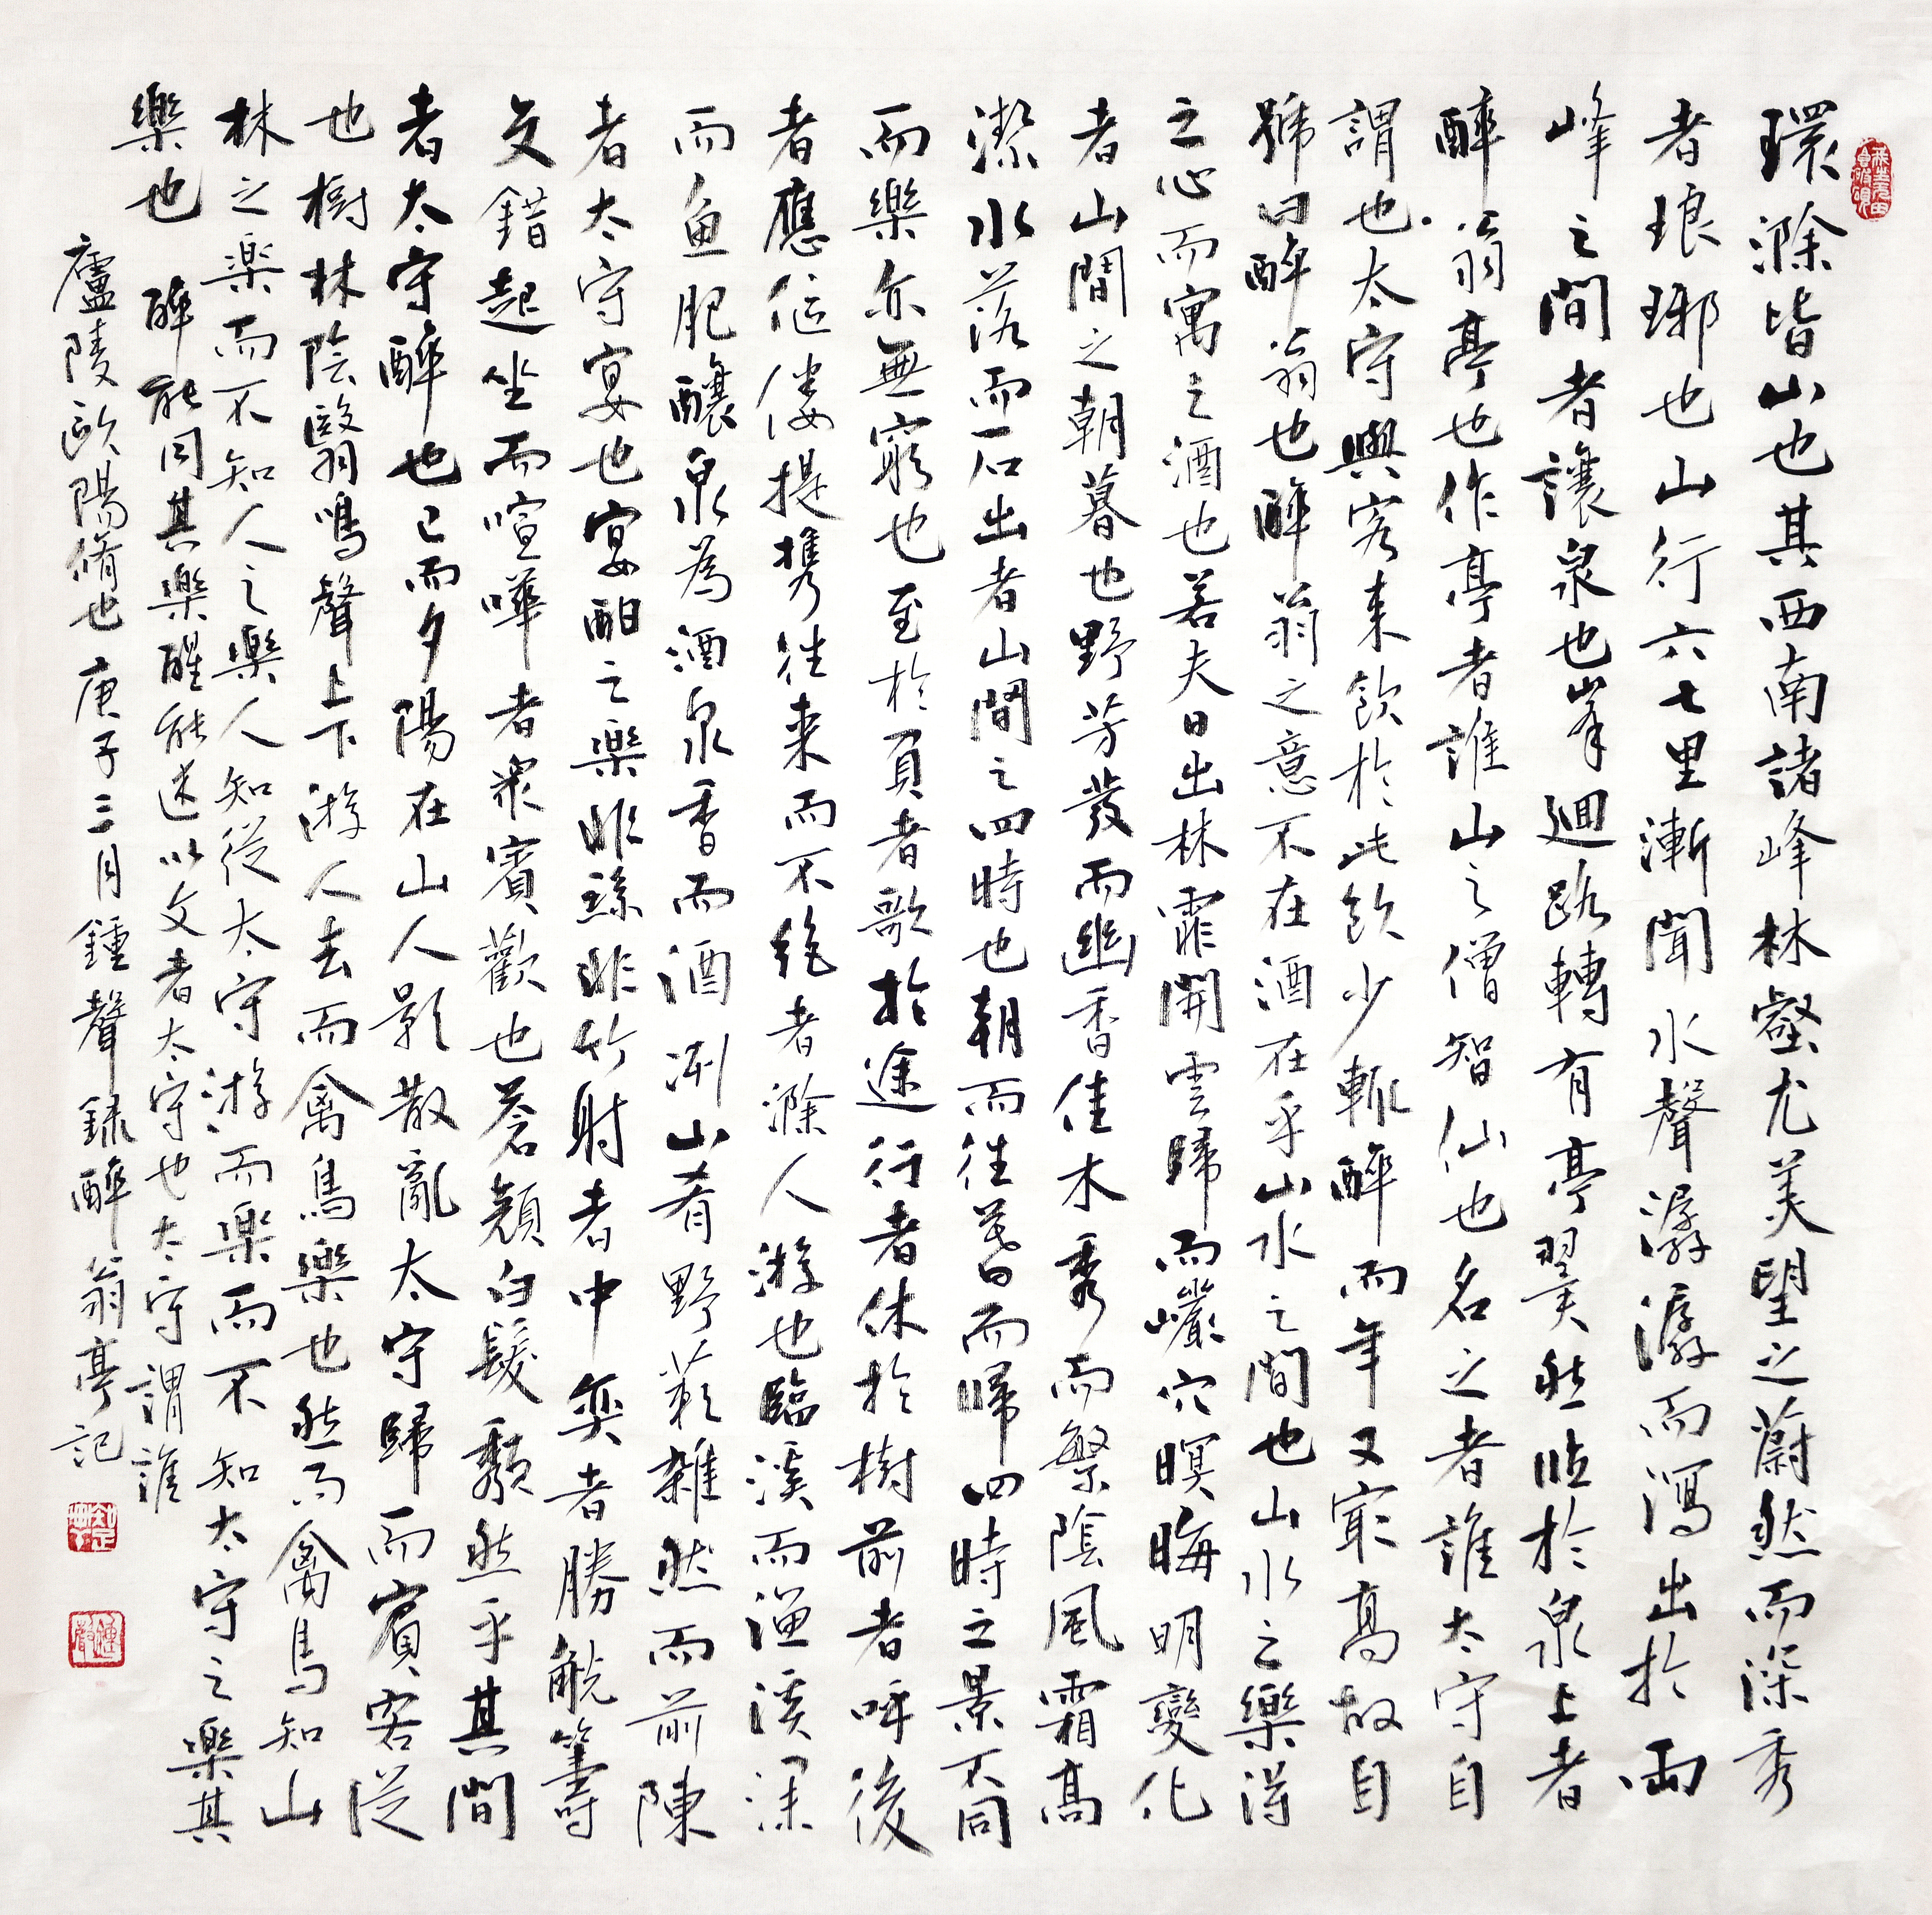 環滁皆山也其西南諸峰林壑尤美望之蔚然而深秀
者琅琊也山行六七里漸聞水聲潺潺而瀉出於兩
峰之間者讓泉也峯迴路轉有亭翼然臨於泉上者
醉翁亭也作亭者誰山之僧智仙也名之者誰太守自
謂也太守與客来飲於此飲少輒醉而年又冣高故自
號曰醉翁也醉翁之意不在酒在乎山水之間也山水之樂得
之心而寓之酒也若夫日出林霏開雲歸而巖穴暝晦明變化
者山間之朝暮也野芳發而幽香佳木秀而繁陰風霜高
潔水落而石出者山間之四時也朝而往暮而歸四時之景不同
而樂亦無窮也至於負者歌於途行者休於樹前者呼後
者應傴僂提携往来而不絶者滁人游也臨溪而漁溪深
而魚肥釀泉為酒泉香而酒洌山肴野蔌雜然而前陳
者太守宴也宴酣之樂非絲非竹射者中弈者勝觥籌
交錯起坐而喧嘩者衆賓歡也蒼顔白髮頹然乎其間
者太守醉也已而夕陽在山人影散亂太守歸而賓客從
也樹林陰翳鳴聲上下游人去而禽鳥樂也然而禽鳥知山
林之樂而不知人之樂人知從太守游而樂而不知太守之樂其
樂也醉能同其樂醒能述以文者太守也太守謂誰
廬陵歐陽脩也庚子三月鍾聲録醉翁亭記
鍾聲